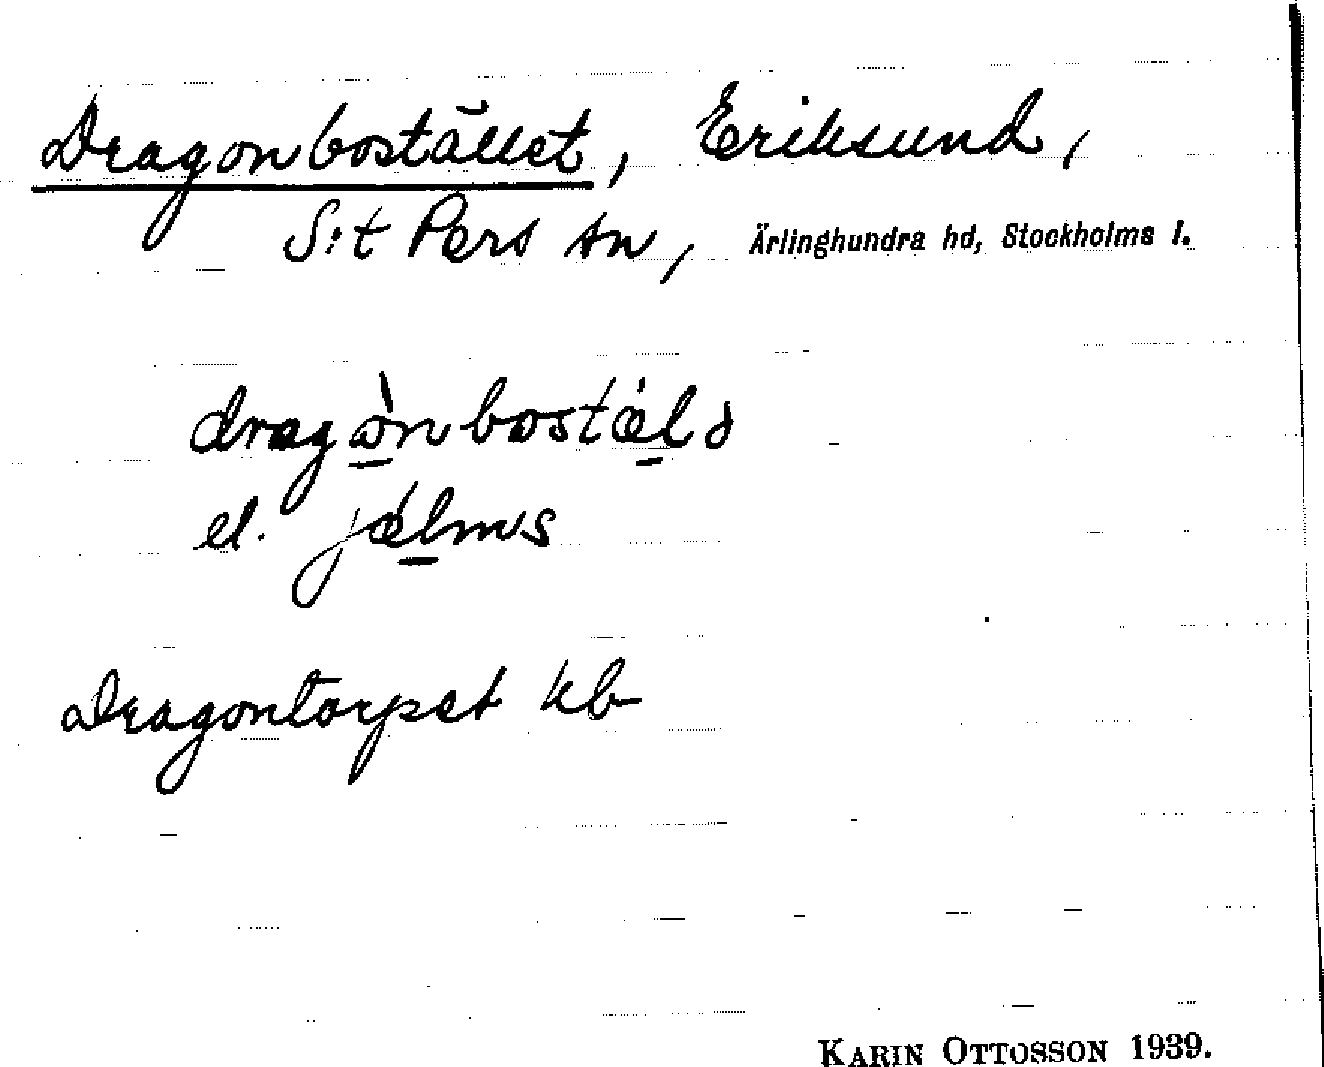 Dragonbostället, Eriksund,
S:t Pers sn, Ärlinghundra hd, Stockholms l.
dragònbostæ̀lə
el. jælms
Dragontorpet kb
KARIN OTTOSSON 1939.